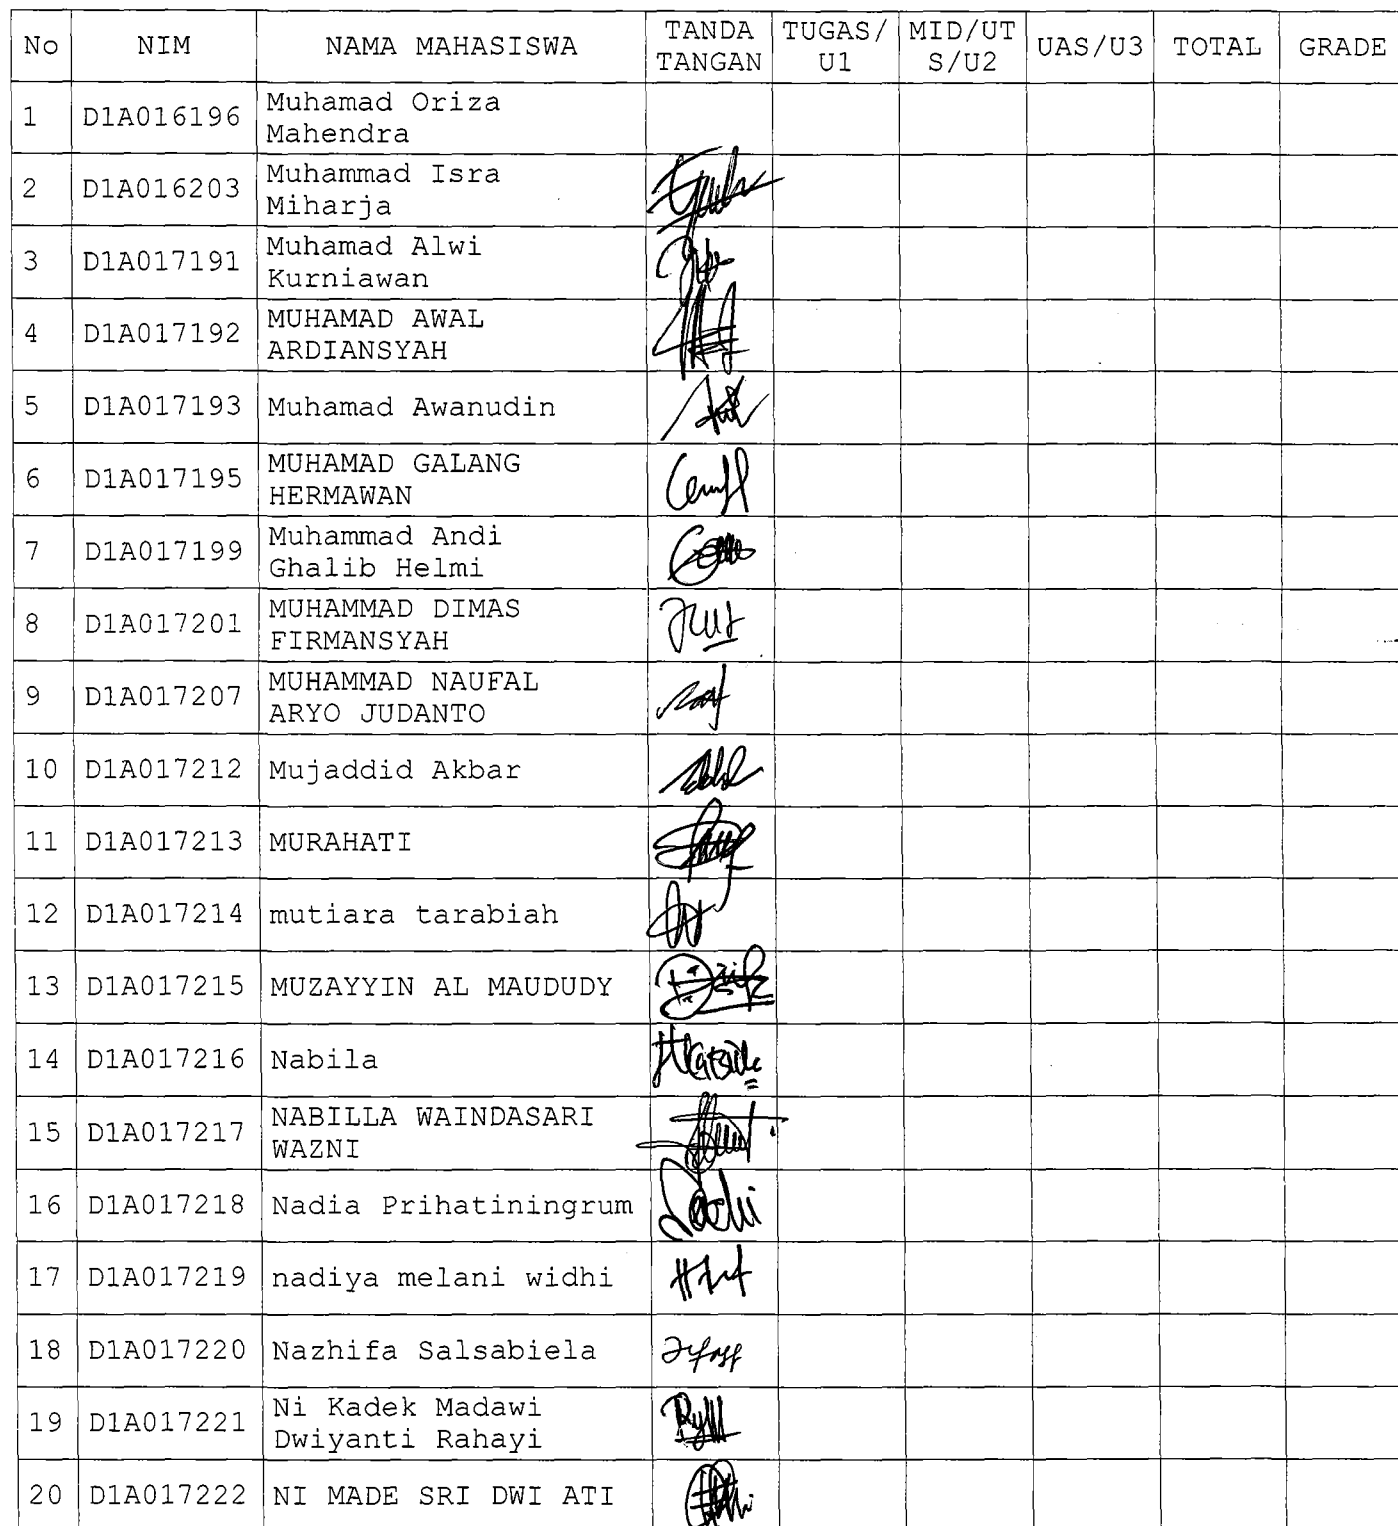 No NIM NAMA MAHASISWA TANDA TANGAN TUGAS/U1 MID/UTS/U2 UAS/U3 TOTAL GRADE
1 D1A016196 Muhamad Oriza
Mahendra
2 D1A016203 Muhammad Isra
Miharja
3 D1A017191 Muhamad Alwi
Kurniawan
4 D1A017192 MUHAMAD AWAL
ARDIANSYAH
5 D1A017193 Muhamad Awanudin
6 D1A017195 MUHAMAD GALANG
HERMAWAN
7 D1A017199 Muhammad Andi
Ghalib Helmi
8 D1A017201 MUHAMMAD DIMAS
FIRMANSYAH
9 D1A017207 MUHAMMAD NAUFAL
ARYO JUDANTO
10 D1A017212 Mujaddid Akbar
11 D1A017213 MURAHATI
12 D1A017214 mutiara tarabiah
13 D1A017215 MUZAYYIN AL MAUDUDY
14 D1A017216 Nabila
15 D1A017217 NABILLA WAINDASARI
WAZNI
16 D1A017218 Nadia Prihatiningrum
17 D1A017219 nadiya melani widhi
18 D1A017220 Nazhifa Salsabiela
19 D1A017221 Ni Kadek Madawi
Dwiyanti Rahayi
20 D1A017222 NI MADE SRI DWI ATI